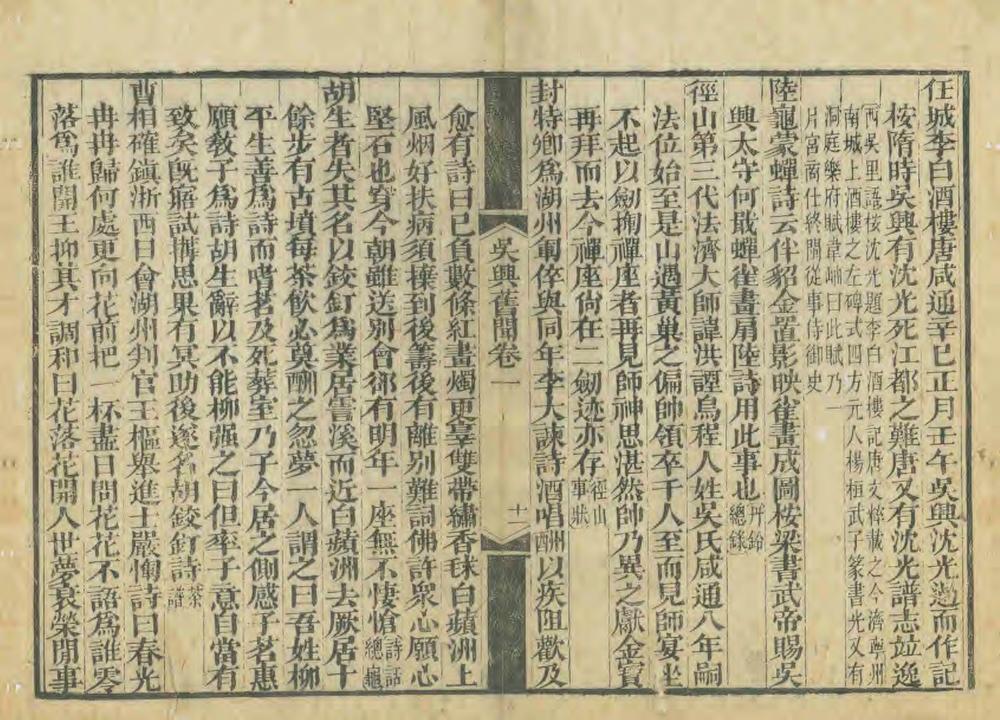 任城李白酒樓唐咸通辛巳正月壬午吳興沈光過而作記
桉隋時吳興有沈光死江都之難唐又有沈光譜志竝逸
西吳里語桉沈光題李白酒樓記唐文粹載之今濟寧州
南城上酒樓之左碑式四方元人楊桓武子篆書光又有
洞庭樂府賦韋岫曰此賦乃一
片宮商仕終閩從事侍御史
陸龜蒙蟬詩云伴貂金置影映雀畫成圖桉梁書武帝賜吳
興太守何戢蟬雀畫扇陸詩用此事也丹鉛
總錄
徑山第三代法濟大師諱洪諲烏程人姓吳氏咸通八年嗣
法位始至是山遇黃巢之偏帥領卒千人至而見師宴坐
不起以劒揕禪座者再見師神思湛然帥乃異之獻金寶
再拜而去今禪座尙在二劒迹亦存徑山
事狀
封特卿爲湖州軍倅與同年李大諫詩酒唱酬以疾阻歡及
吳興舊聞卷一
十二
愈有詩曰已負數條紅畫燭更辜雙帶繡香毬白蘋洲上
風烟好扶病須攘到後籌後有離别難詞佛許衆心願心
堅石也穿今朝雖送别會郤有明年一座無不悽愴詩話
總龜
胡生者失其名以鉸釘爲業居霅溪而近白蘋洲去厥居十
餘步有古墳每茶飮必奠酬之忽夢一人謂之曰吾姓柳
平生善爲詩而嗜茗及死葬室乃子今居之側感子茗惠
願敎子爲詩胡生辭以不能柳强之曰但率子意白當有
致矣旣寤試搆思果有冥助後遂名胡鉸釘詩茶
譜
曹相確鎭浙西日會湖州判官王樞舉進士嚴惲詩曰春光
冉冉歸何處更向花前把一杯盡日問花花不語爲誰零
落爲誰開王抑其才調和曰花落花開人世夢衰榮閒事